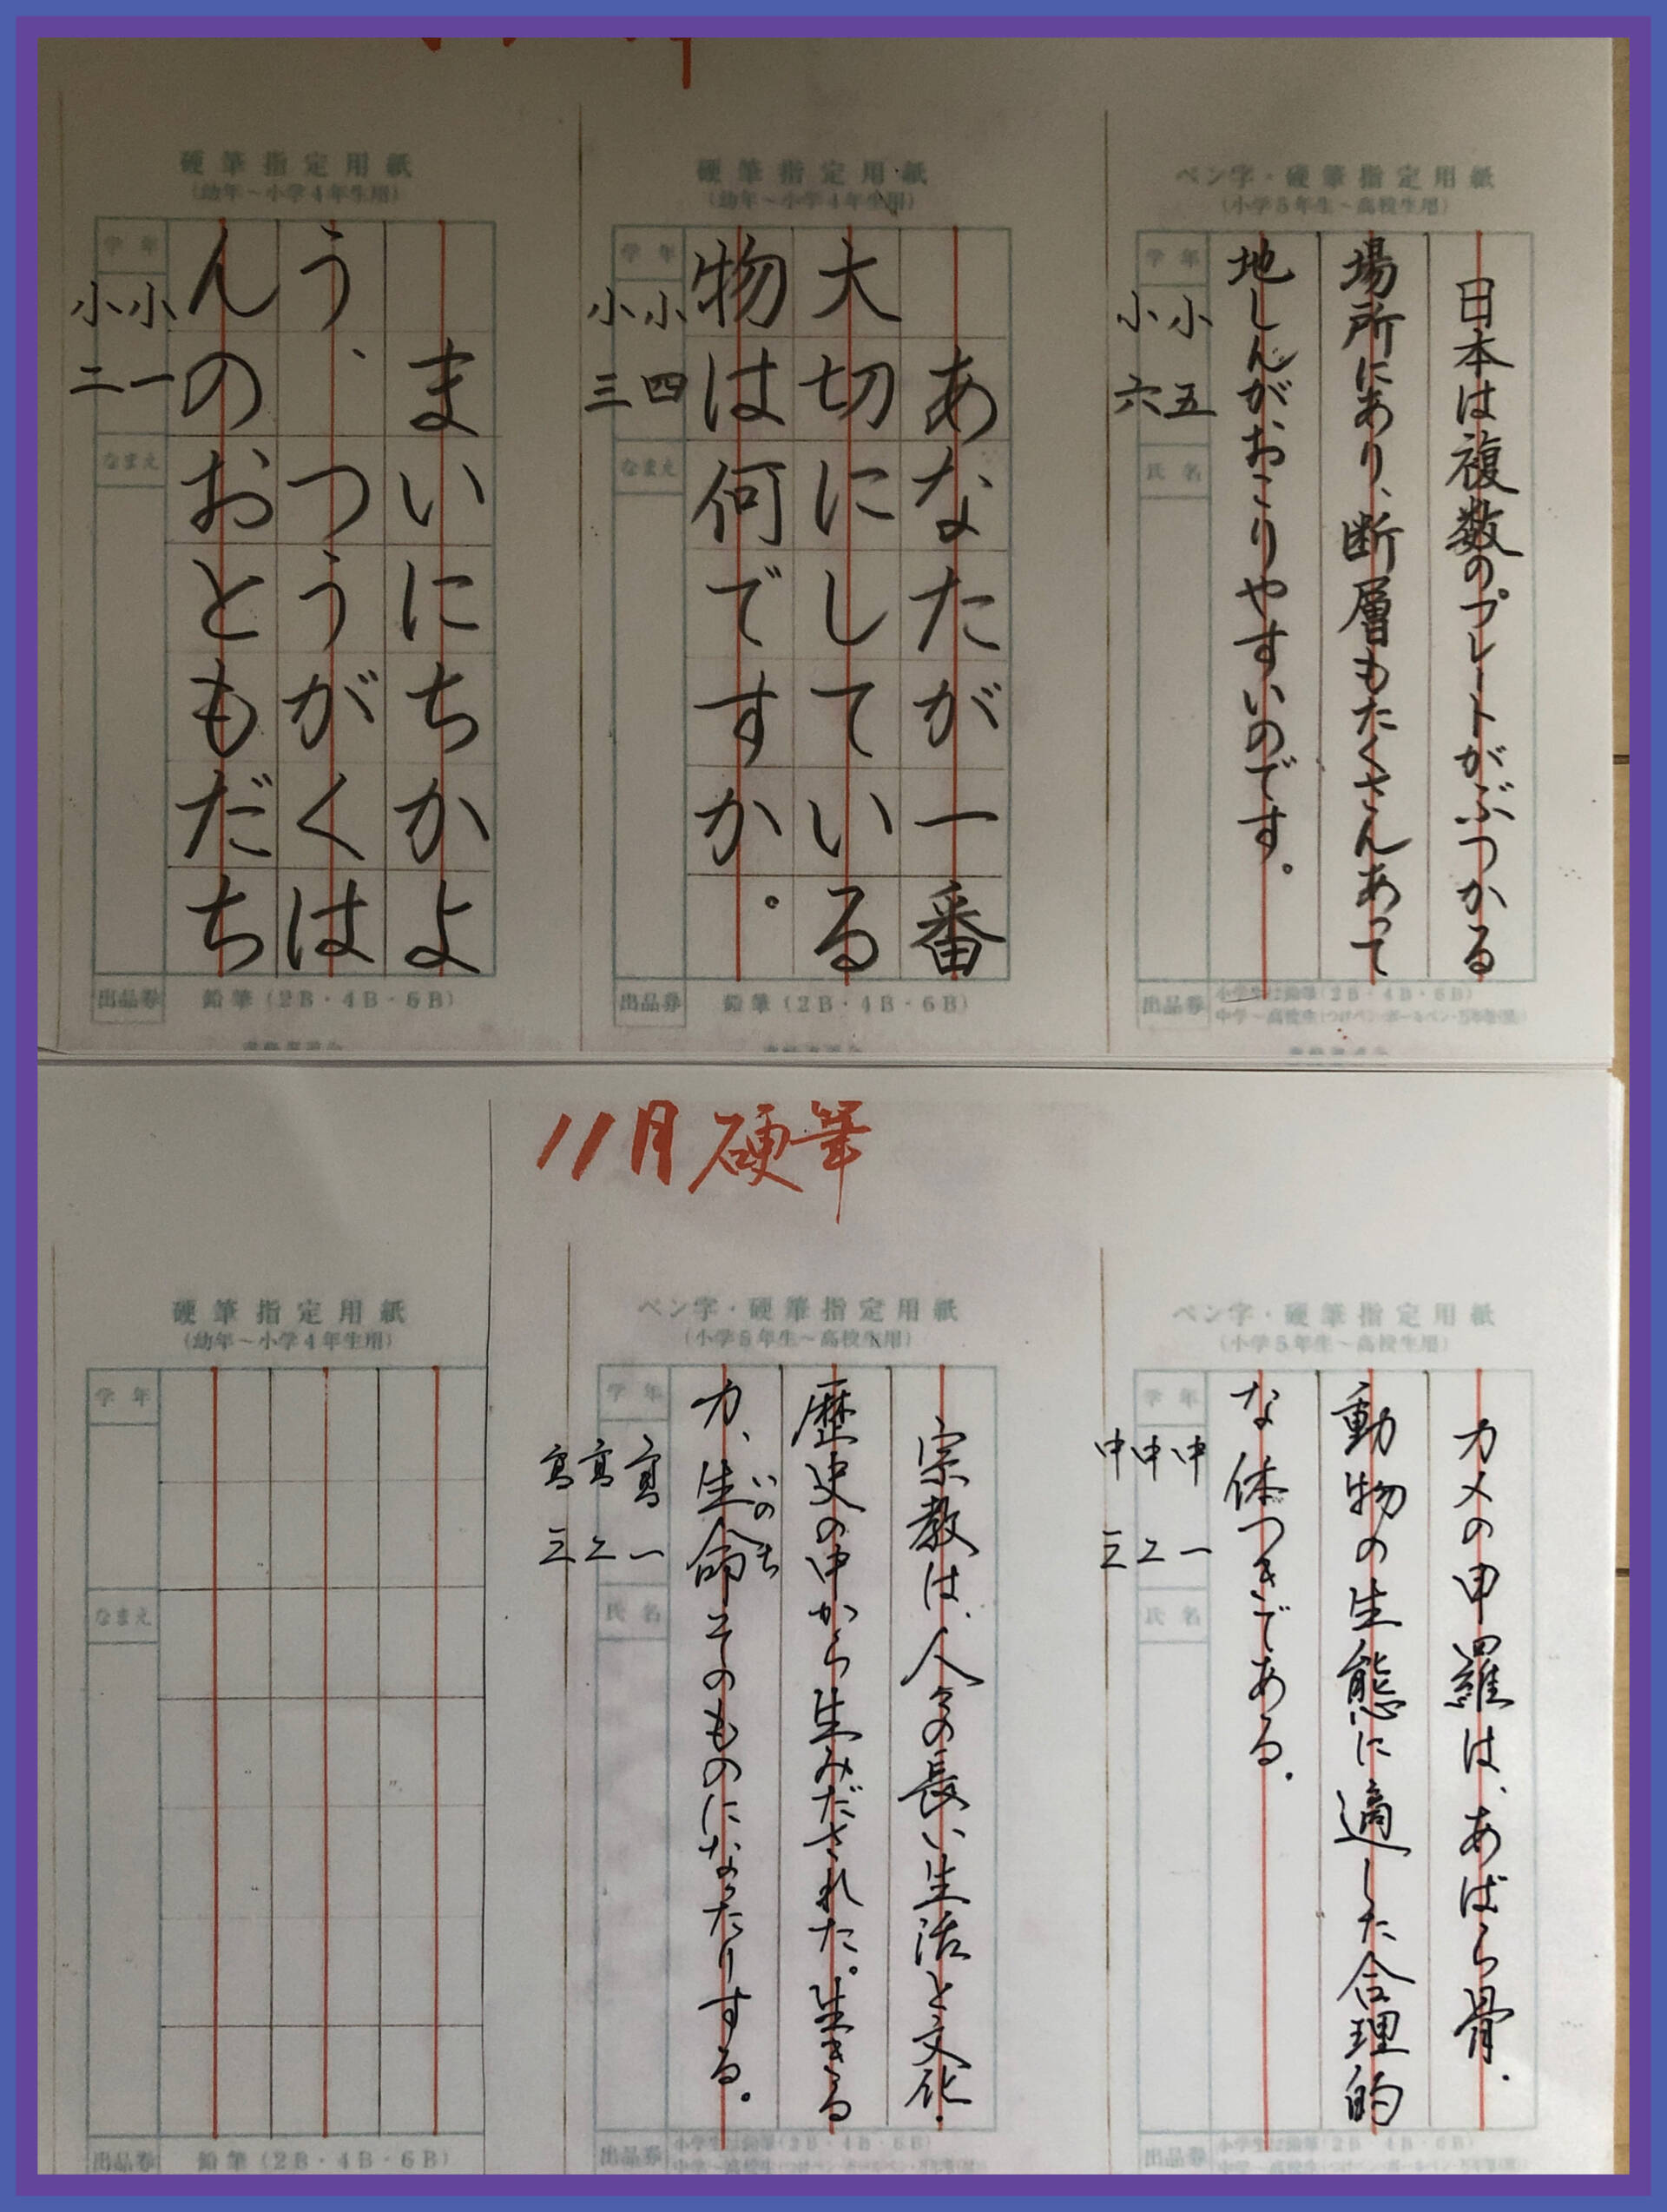 ペン字・硬筆指定用紙
(小学5年生～高校生用)
日本は複数のプレートがぶつかる
場所にあり、断層もたくさんあって
地しんがおこりやすいのです。
学年
小五
小六
氏名
出品券
小学生は鉛筆(2B・4B・6B)
硬筆指定用紙
(幼年～小学4年生用)
あなたが一番
大切にしている
物は何ですか。
学年
小四
小三
なまえ
出品券
鉛筆(2B・4B・6B)
硬筆指定用紙
(幼年～小学4年生用)
まいにちかよ
う、つうがくは
んのおともだち
学年
小一
小二
なまえ
出品券
鉛筆(2B・4B・6B)
11月硬筆
ペン字・硬筆指定用紙
(小学5年生～高校生用)
カメの甲羅は、あばら骨.
動物の生態に適した合理的
な体つきである.
学年
中一
中二
中三
氏名
出品券
小学生は鉛筆(2B・4B・6B)
ペン字・硬筆指定用紙
(小学5年生～高校生用)
宗教は、人々の長い生活と文化.
歴史の中から生みだされた。生きる
力、生命そのものになったりする。
いのち
学年
高一
高二
高三
氏名
出品券
小学生は鉛筆(2B・4B・6B)
硬筆指定用紙
(幼年～小学4年生用)
学年
なまえ
出品券
鉛筆(2B・4B・6B)